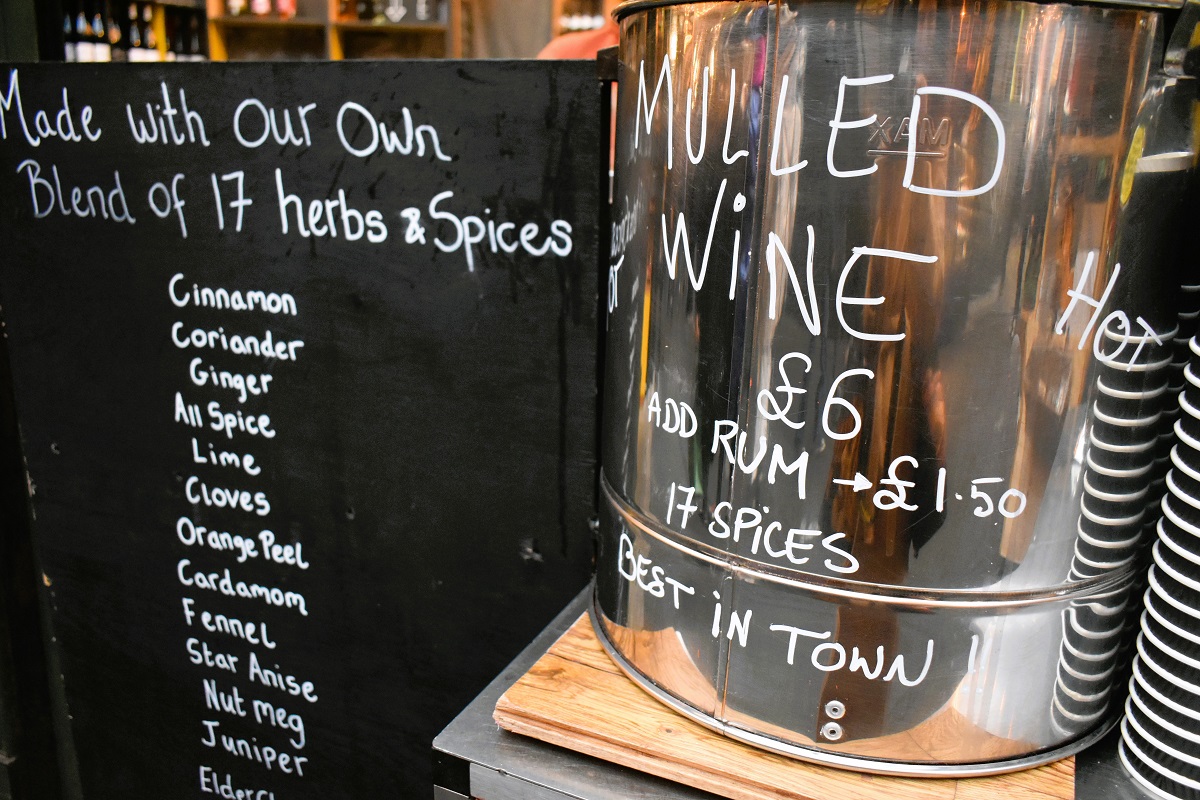 Made with Our Own
Blend of 17 herbs & Spices
Cinnamon
Coriander
Ginger
All Spice
Lime
Cloves
Orange Peel
Cardamom
Fennel
Star Anise
Nut meg
Juniper
MULLED
WiNE
£6
ADD RUM → £1.50
17 SPiCES
BEST iN TOWN !!
MAX
HOT